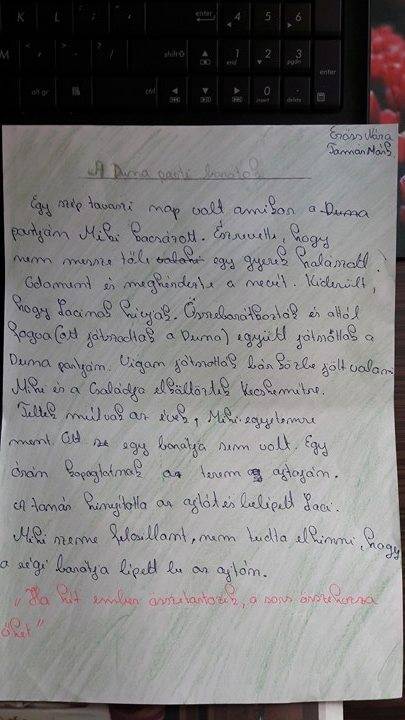 K L enter 4 5 6
M shift 1 end 2 3 pgdn
alt gr ctrl 0 insert . delete enter
Erőss Nára
Tamás Márk
A Duna parti barátok
Egy szép tavaszi nap volt amikor a Duna
partján Miki kacsázott. Észrevette, hogy
nem messze tőle egy gyerek halászott.
Odament és megkérdezte a nevét. Kiderült,
hogy Lacinak hívják. Összebarátkoztak és attól
fogva (ott játszodtak a Duna) együtt játszottak a
Duna partján. Vígan játszottak bár közbe jött valami
Miki és a Családja elköltöztek Kecskemétre.
Teltek múltak az évek, Miki egyetemre
ment. Ott egy barátja sem volt. Egy
órán kopogtatnak a terem ajtaján.
A tanár kinyitotta az ajtót és belépett Laci.
Miki szeme felcsillant, nem tudta elhinni, hogy
a régi barátja lépett be az ajtón.
"Ha két ember összetartozik, a sors összehozza
őket"